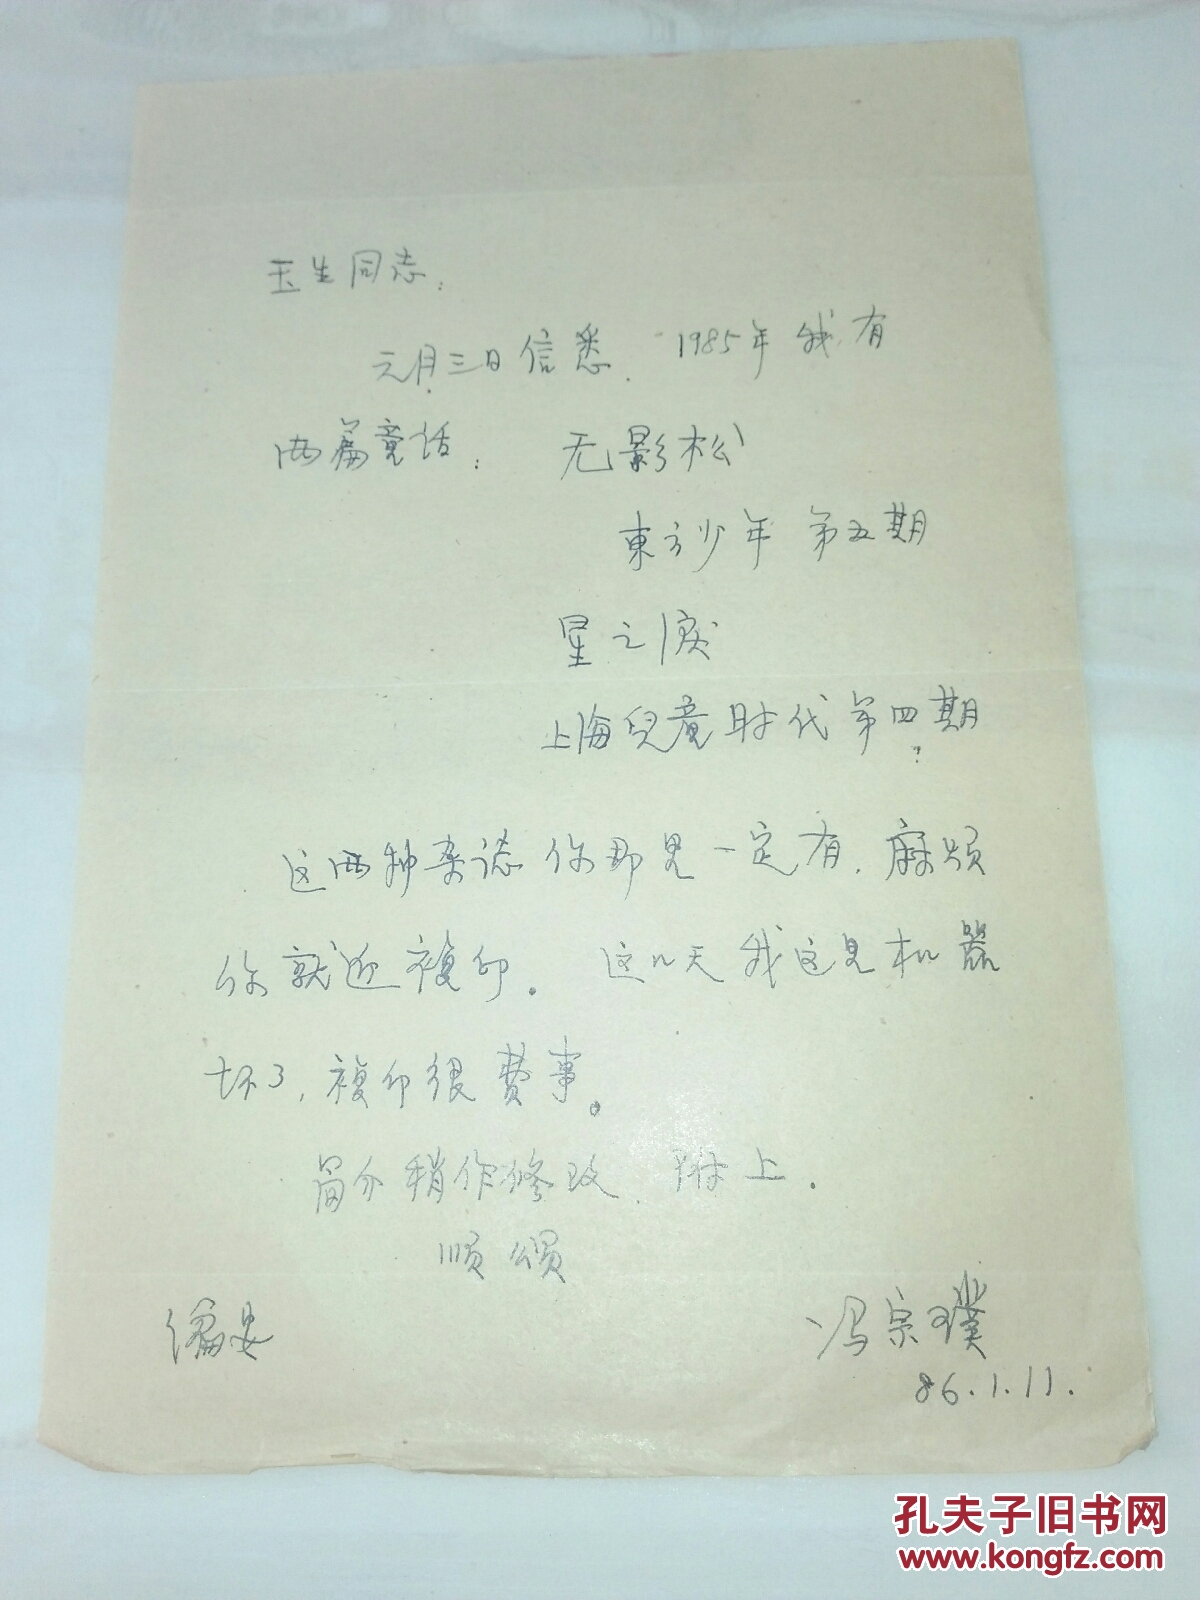 玉生同志：
元月三日信悉．1985年我有
两篇童话：无影松
東方少年 第五期
星之泪
上海兒童时代第四期
?
这两种杂誌你那兒一定有．麻烦
你就近複印。这几天我这兒机器
坏了，複印很费事。
简介稍作修改．附上．
顺颂
编安
冯宗璞
86.1.11.
孔夫子旧书网
www.kongfz.com